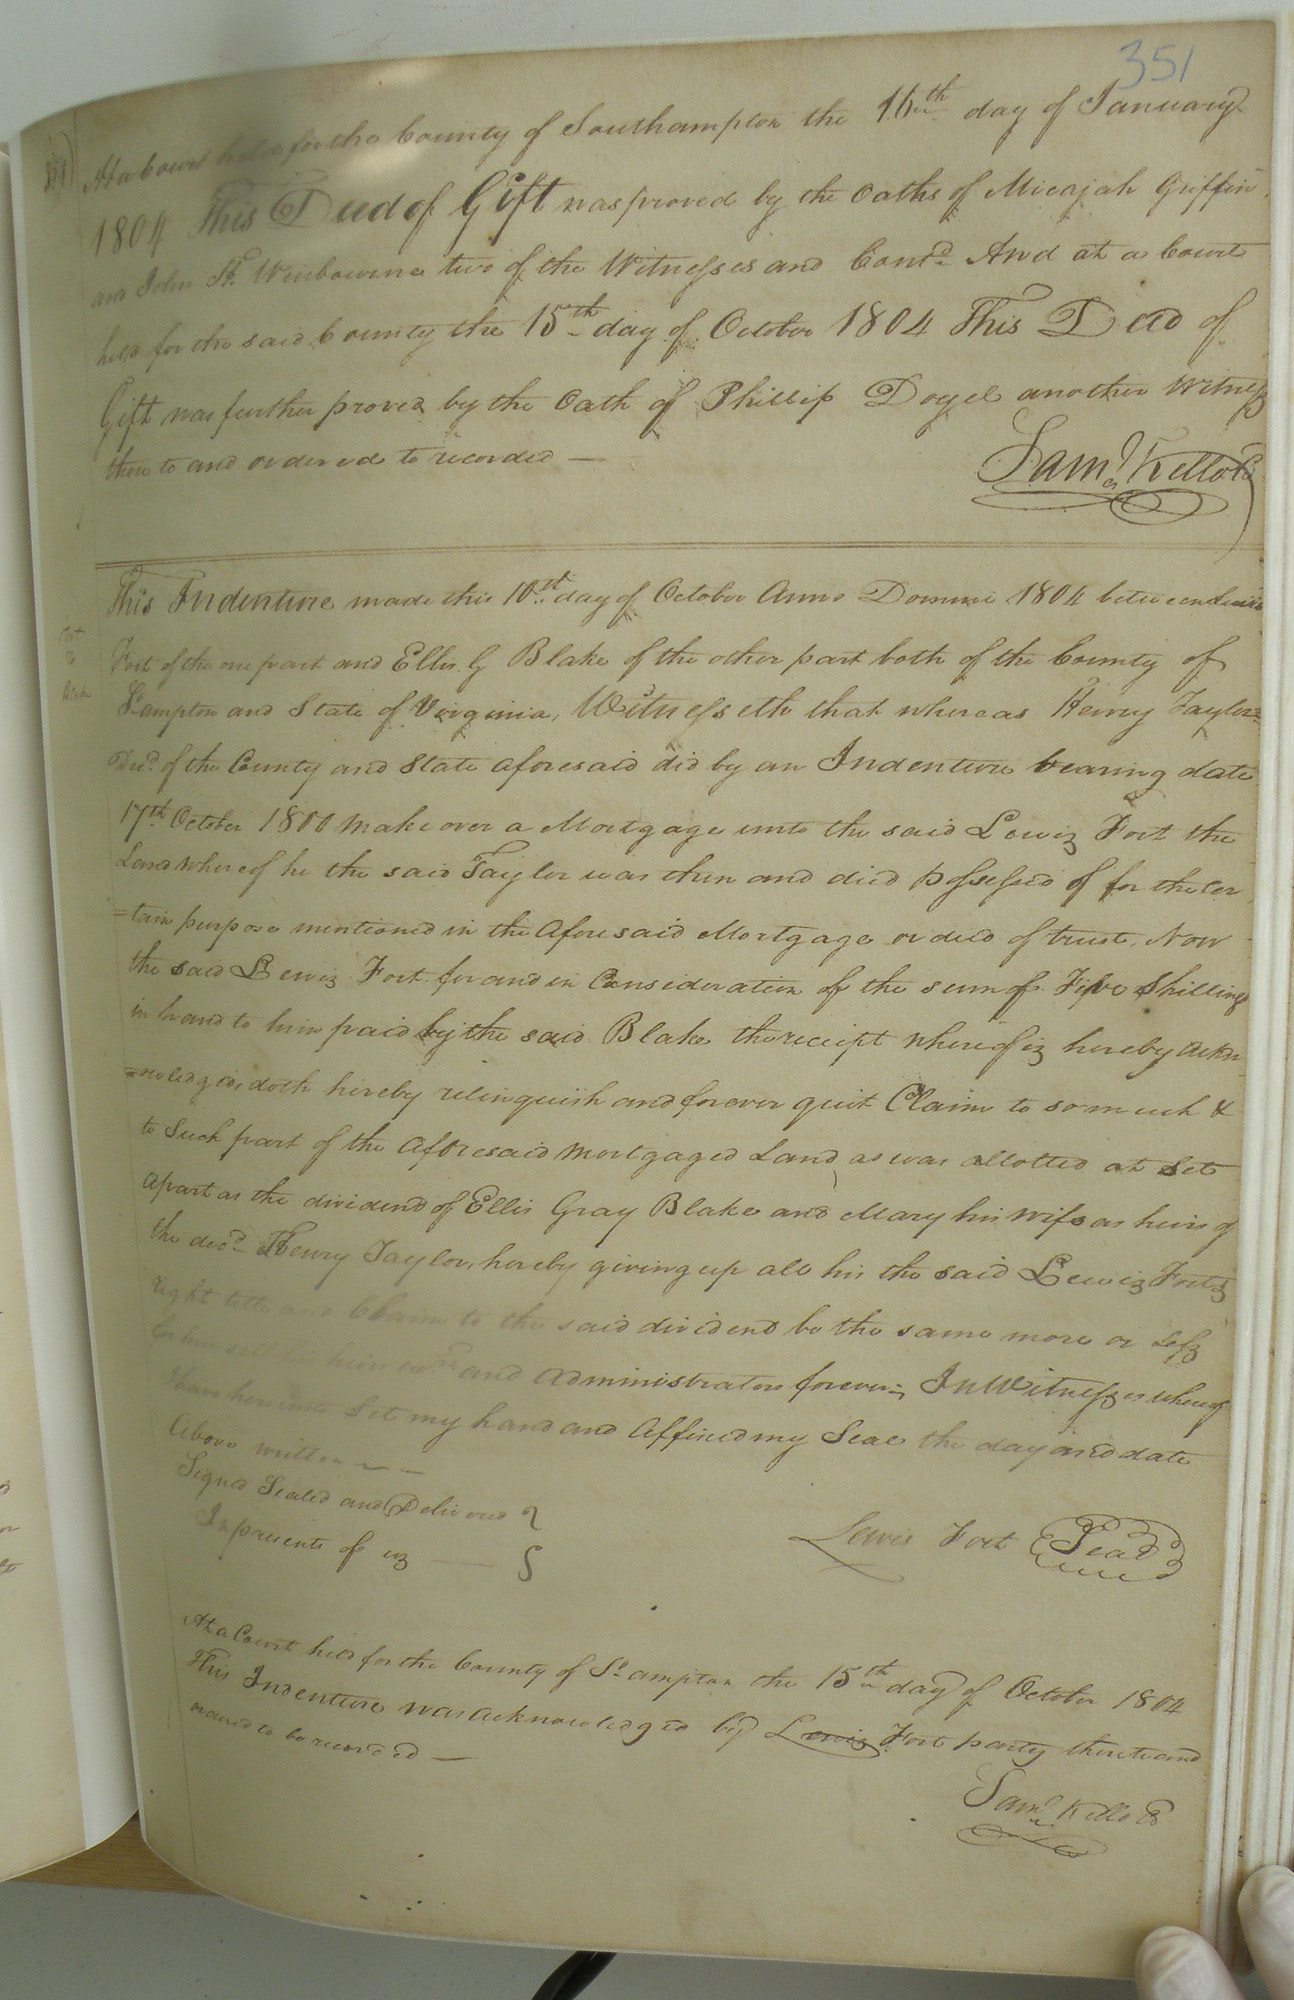 351
351)
At a Court held for the County of Southampton the 16th day of January
1804 This Deed of Gift was proved by the Oaths of Micajah Griffin
and John St. Winbourne two of the Witnesses and Contd. And at a Court
held for the said County the 15th day of October 1804 This Deed of
Gift was further proved by the Oath of Phillip Doyel another Witness
thereto and ordered to recorded —
Saml. Kello Cs
This Indenture made this 10th day of October Anno Domini 1804 between Lewis
Fort
to
Blake
Fort of the one part and Ellis G Blake of the other part both of the County of
S'ampton and State of Virginia, Witnesseth that whereas Henry Taylor
Decd. of the County and State aforesaid did by an Indenture bearing date
17th October 1800 make over a Mortgage unto the said Lewis Fort the
Land whereof he the said Taylor was then and died possessed of for the cer
=tain purpose mentioned in the Aforesaid Mortgage or deed of trust. Now
the said Lewis Fort for and in Consideration of the sum of Five Shillings
in hand to him paid by the said Blake the receipt whereof is hereby ackn
=owledged, doth hereby relinquish and forever quit Claim to so much &
to Such part of the Aforesaid Mortgaged Land as was allotted at Set
apart as the dividend of Ellis Gray Blake and Mary his Wife as heirs of
the decd. Henry Taylor, hereby giving up all his the said Lewis Forts
right title and Claim to the said dividend be the same more or less
for him self his heirs and Administrators forever; In Witness whereof
I have hereunto Set my hand and Affixed my Seal the day and date
above written — —
Signed Sealed and Delivered }
In presents of us — }
Lewis Fort Seal
At a Court held for the County of So.ampton the 15th day of October 1804
This Indenture was Acknowledged by Lewis Fort party thereto and
ordered to be recorded —
Saml. Kello Cs